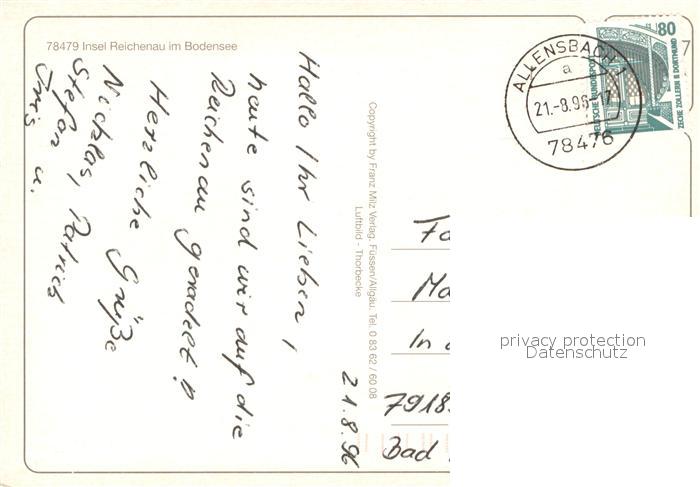 78479 Insel Reichenau im Bodensee
Hallo Ihr Lieben,
heute sind wir auf die
Reichenau geradelt!
Herzliche Grüße
Nicklas, Patrick
Stefan u.
Iris
21.8.96
Copyright by Franz Milz Verlag, Füssen/Allgäu. Tel. 0 83 62 / 60 08
Luftbild - Thorbecke
ALLENSBACH 1
a
21.-8.96-17
78476
80
DEUTSCHE BUNDESPOST
ZECHE ZOLLERN II DORTMUND
7
Fa
Ma
In d
7918
Bad
privacy protection
Datenschutz